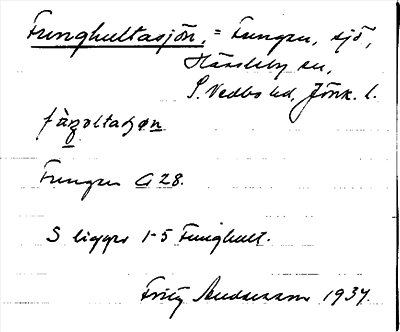 Funghultasjön, = Fungen, sjö,
Hässleby sn,
S. Vedbo hd, Jönk. l.
fàŋoltaʃøn
Fungen G 28.
S ligger 1-5 Funghult.
Fritz Andersson 1937.